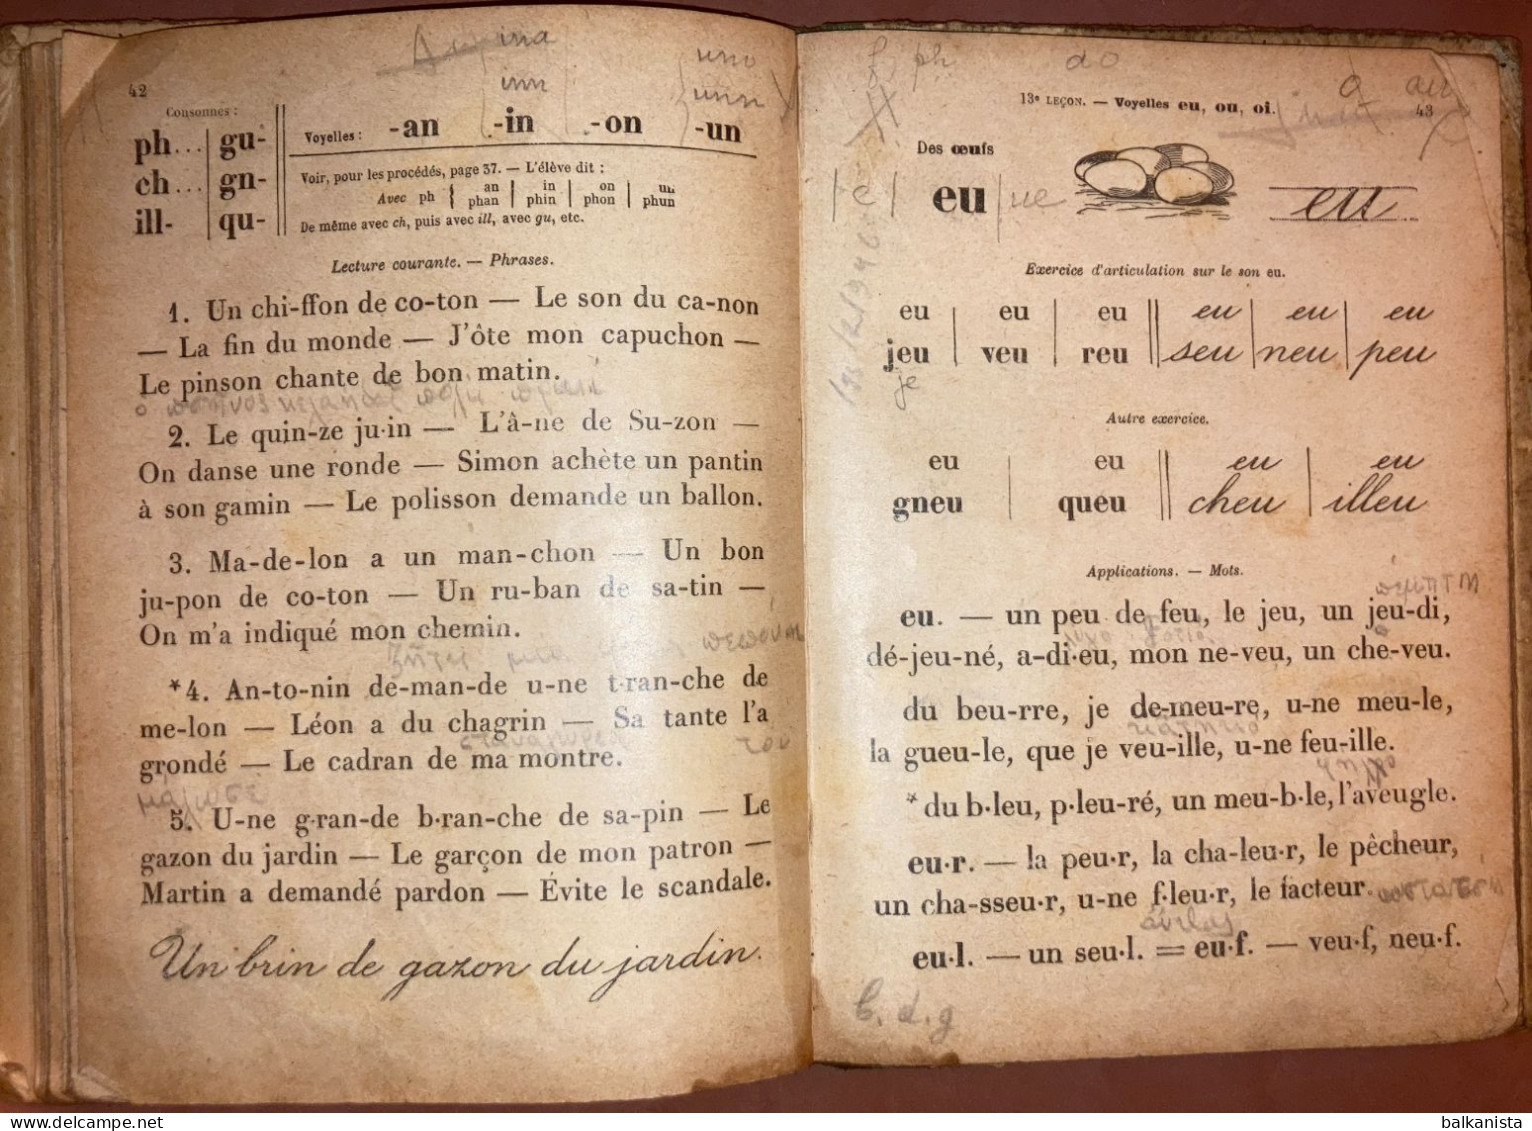 42
Consonnes :
ph... gu-
ch... gn-
ill- qu-
Voyelles : -an -in -on -un
Voir, pour les procédés, page 37. — L'élève dit :
Avec ph { an in on un
phan phin phon phun
De même avec ch, puis avec ill, avec gu, etc.
Lecture courante. — Phrases.
1. Un chi-ffon de co-ton — Le son du ca-non
— La fin du monde — J'ôte mon capuchon —
Le pinson chante de bon matin.
2. Le quin-ze ju·in — L'â-ne de Su-zon —
On danse une ronde — Simon achète un pantin
à son gamin — Le polisson demande un ballon.
3. Ma-de-lon a un man-chon — Un bon
ju-pon de co-ton — Un ru-ban de sa-tin —
On m'a indiqué mon chemin.
*4. An-to-nin de-man-de u-ne t·ran-che de
me-lon — Léon a du chagrin — Sa tante l'a
grondé — Le cadran de ma montre.
5. U-ne g·ran-de b·ran-che de sa-pin — Le
gazon du jardin — Le garçon de mon patron —
Martin a demandé pardon — Évite le scandale.
Un brin de gazon du jardin.
ph do
13e LEÇON. — Voyelles eu, ou, oi.
43
Des œufs
e eu eu
Exercice d'articulation sur le son eu.
eu eu eu eu eu eu
jeu veu reu seu neu peu
je
Autre exercice.
eu eu eu eu
gneu queu cheu illeu
Applications. — Mots.
eu. — un peu de feu, le jeu, un jeu-di,
dé-jeu-né, a-di·eu, mon ne-veu, un che-veu.
du beu-rre, je de-meu-re, u-ne meu-le,
la gueu-le, que je veu-ille, u-ne feu-ille.
*du b·leu, p·leu-ré, un meu-b·le, l'aveugle.
eu·r. — la peu·r, la cha-leu·r, le pêcheur,
un cha-sseu·r, u-ne f·leu·r, le facteur.
eu·l. — un seu·l. = eu·f. — veu·f, neu·f.
b. d. g
balkanista